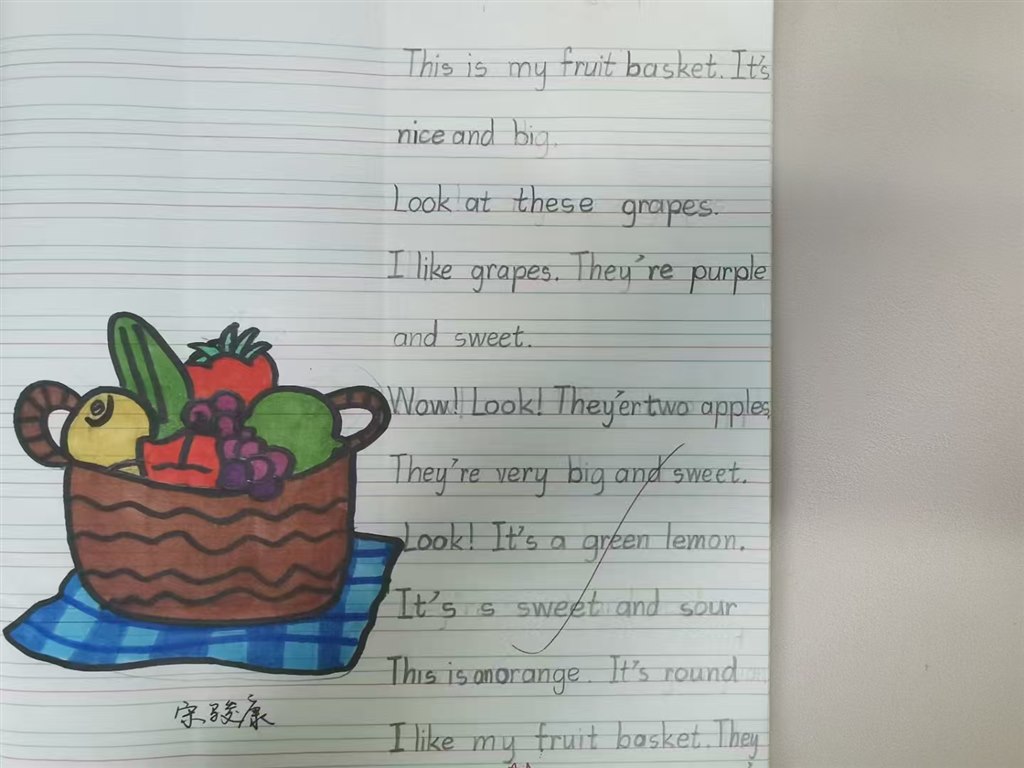 This is my fruit basket. It's
nice and big.
Look at these grapes.
I like grapes. They're purple
and sweet.
Wow! Look! They'er two apples
They're very big and sweet.
Look! It's a green lemon.
It's s sweet and sour
This is an orange. It's round
I like my fruit basket. They
宋骏康